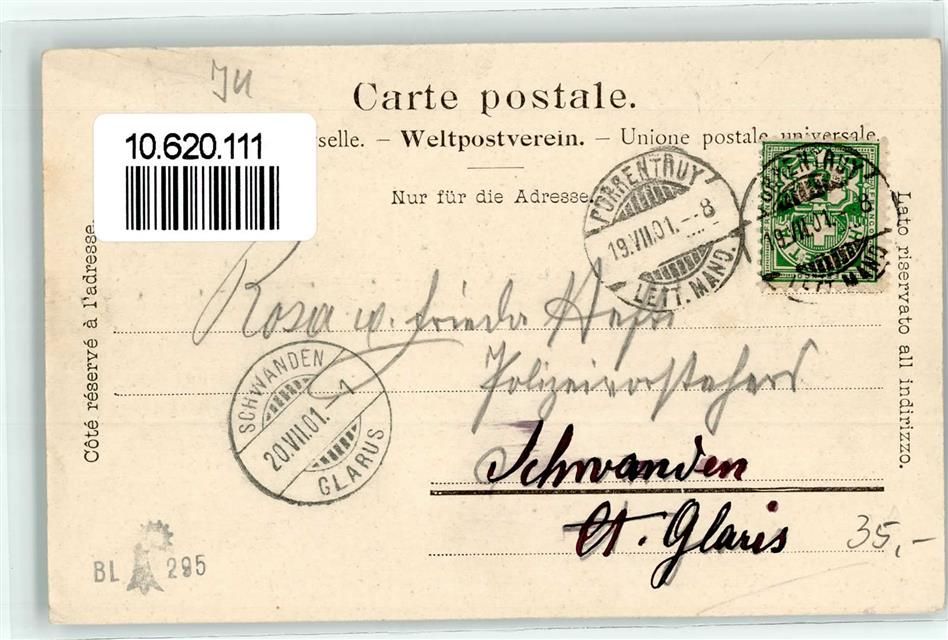 JU
Carte postale.
10.620.111
selle. – Weltpostverein. – Unione postale universale.
Nur für die Adresse.
Côté réservé à l'adresse.
Lato riservato all indirizzo.
PORRENTRUY
19.VII.01.–8
LETT. MAND.
PORRENTRUY
19.VII.01.–8
LETT. MAND.
Rosa u. Frieda
Polizeivorstehers
Schwanden
Ct. Glaris
SCHWANDEN
20.VII.01.–1
GLARUS
BL 295
35,-